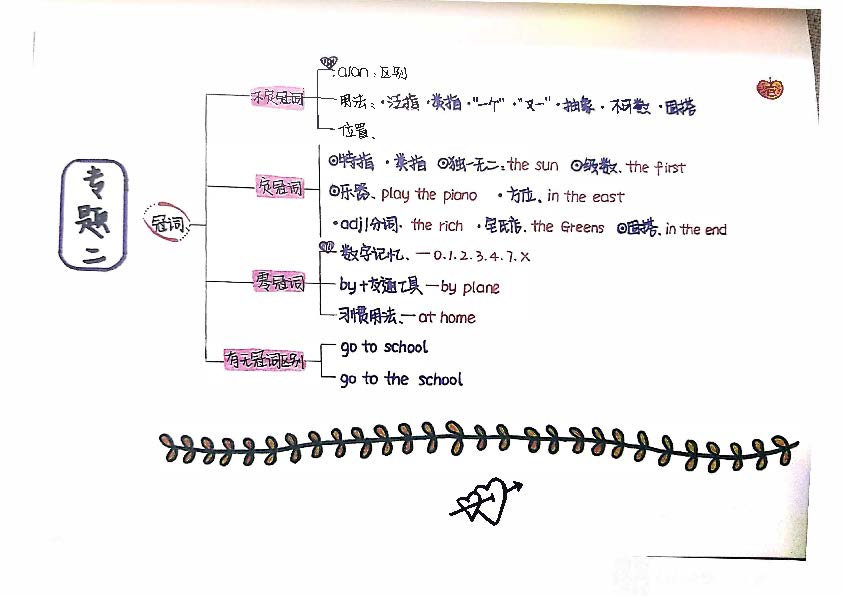 专题二
冠词
不定冠词
a/an:区别
用法:·泛指·类指·"一个"·"又一"·抽象·不可数·固搭
位置、
定冠词
⊙特指 ·类指 ⊙独一无二:the sun ⊙级数、the first
⊙乐器、play the piano ·方位、in the east
·adj/分词· the rich ·姓氏、the Greens ⊙固搭、in the end
零冠词
数字记忆、—0.1.2.3.4.7.X
by+交通工具—by plane
习惯用法、—at home
有无冠词区别
go to school
go to the school